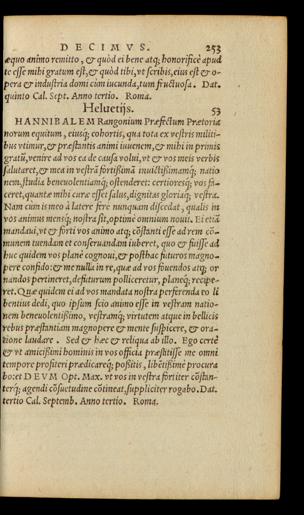 DECIMVS. 253
æquo animo remitto, & quòd ei bene atq; honorificè apud
te esse mihi gratum est, & quòd tibi, vt scribis, eius est & o-
pera & industria domi cùm iucunda, tum fructuosa. Dat.
quinto Cal. Sept. Anno tertio. Roma.
Heluetijs. 53
HANNIBALEM Rangonium Præfectum Prætoria
norum equitum, eiusq; cohortis, qua tota ex vestris militi-
bus vtimur, & præstantis animi iuuenem, & mihi in primis
gratũ, venire ad vos ea de causa volui, vt & vos meis verbis
salutaret, & mea in vestrã fortißimã inuictißimamq; natio
nem, studia beneuolentiamq; ostenderet: certioresq; vos fa-
ceret, quantæ mihi curæ esset salus, dignitas gloriaq; vestra.
Nam cum is meo à latere ferè nunquam discedat, qualis in
vos animus mensq; nostra sit, optimè omnium nouit. Ei etiã
mandaui, vt & forti vos animo atq; cõstanti esse ad rem cõ-
munem tuendam et conseruandam iuberet, quo & fuisse ad
huc quidem vos planè cognoui, & posthac futuros magno-
pere confido: & me nulla in re, quæ ad vos fouendos atq; or
nandos pertineret, defuturum polliceretur, planeq; recipe-
ret. Quæ quidem ei ad vos mandata nostra perferenda eo li
bentius dedi, quo ipsum scio animo esse in vestram natio-
nem beneuolentißimo, vestramq; virtutem atque in bellicis
rebus præstantiam magnopere & mente suspicere, & ora-
tione laudare. Sed & hæc & reliqua ab illo. Ego certè
& vt amicißimi hominis in vos officia præstitisse me omni
tempore profiteri prædicareq; poßitis, libētißimè procura
bo: et DEVM Opt. Max. vt vos in vestra fortiter cõstan-
terq; agendi cõsuetudine cõtineat, suppliciter rogabo. Dat.
tertio Cal. Septemb. Anno tertio. Roma.